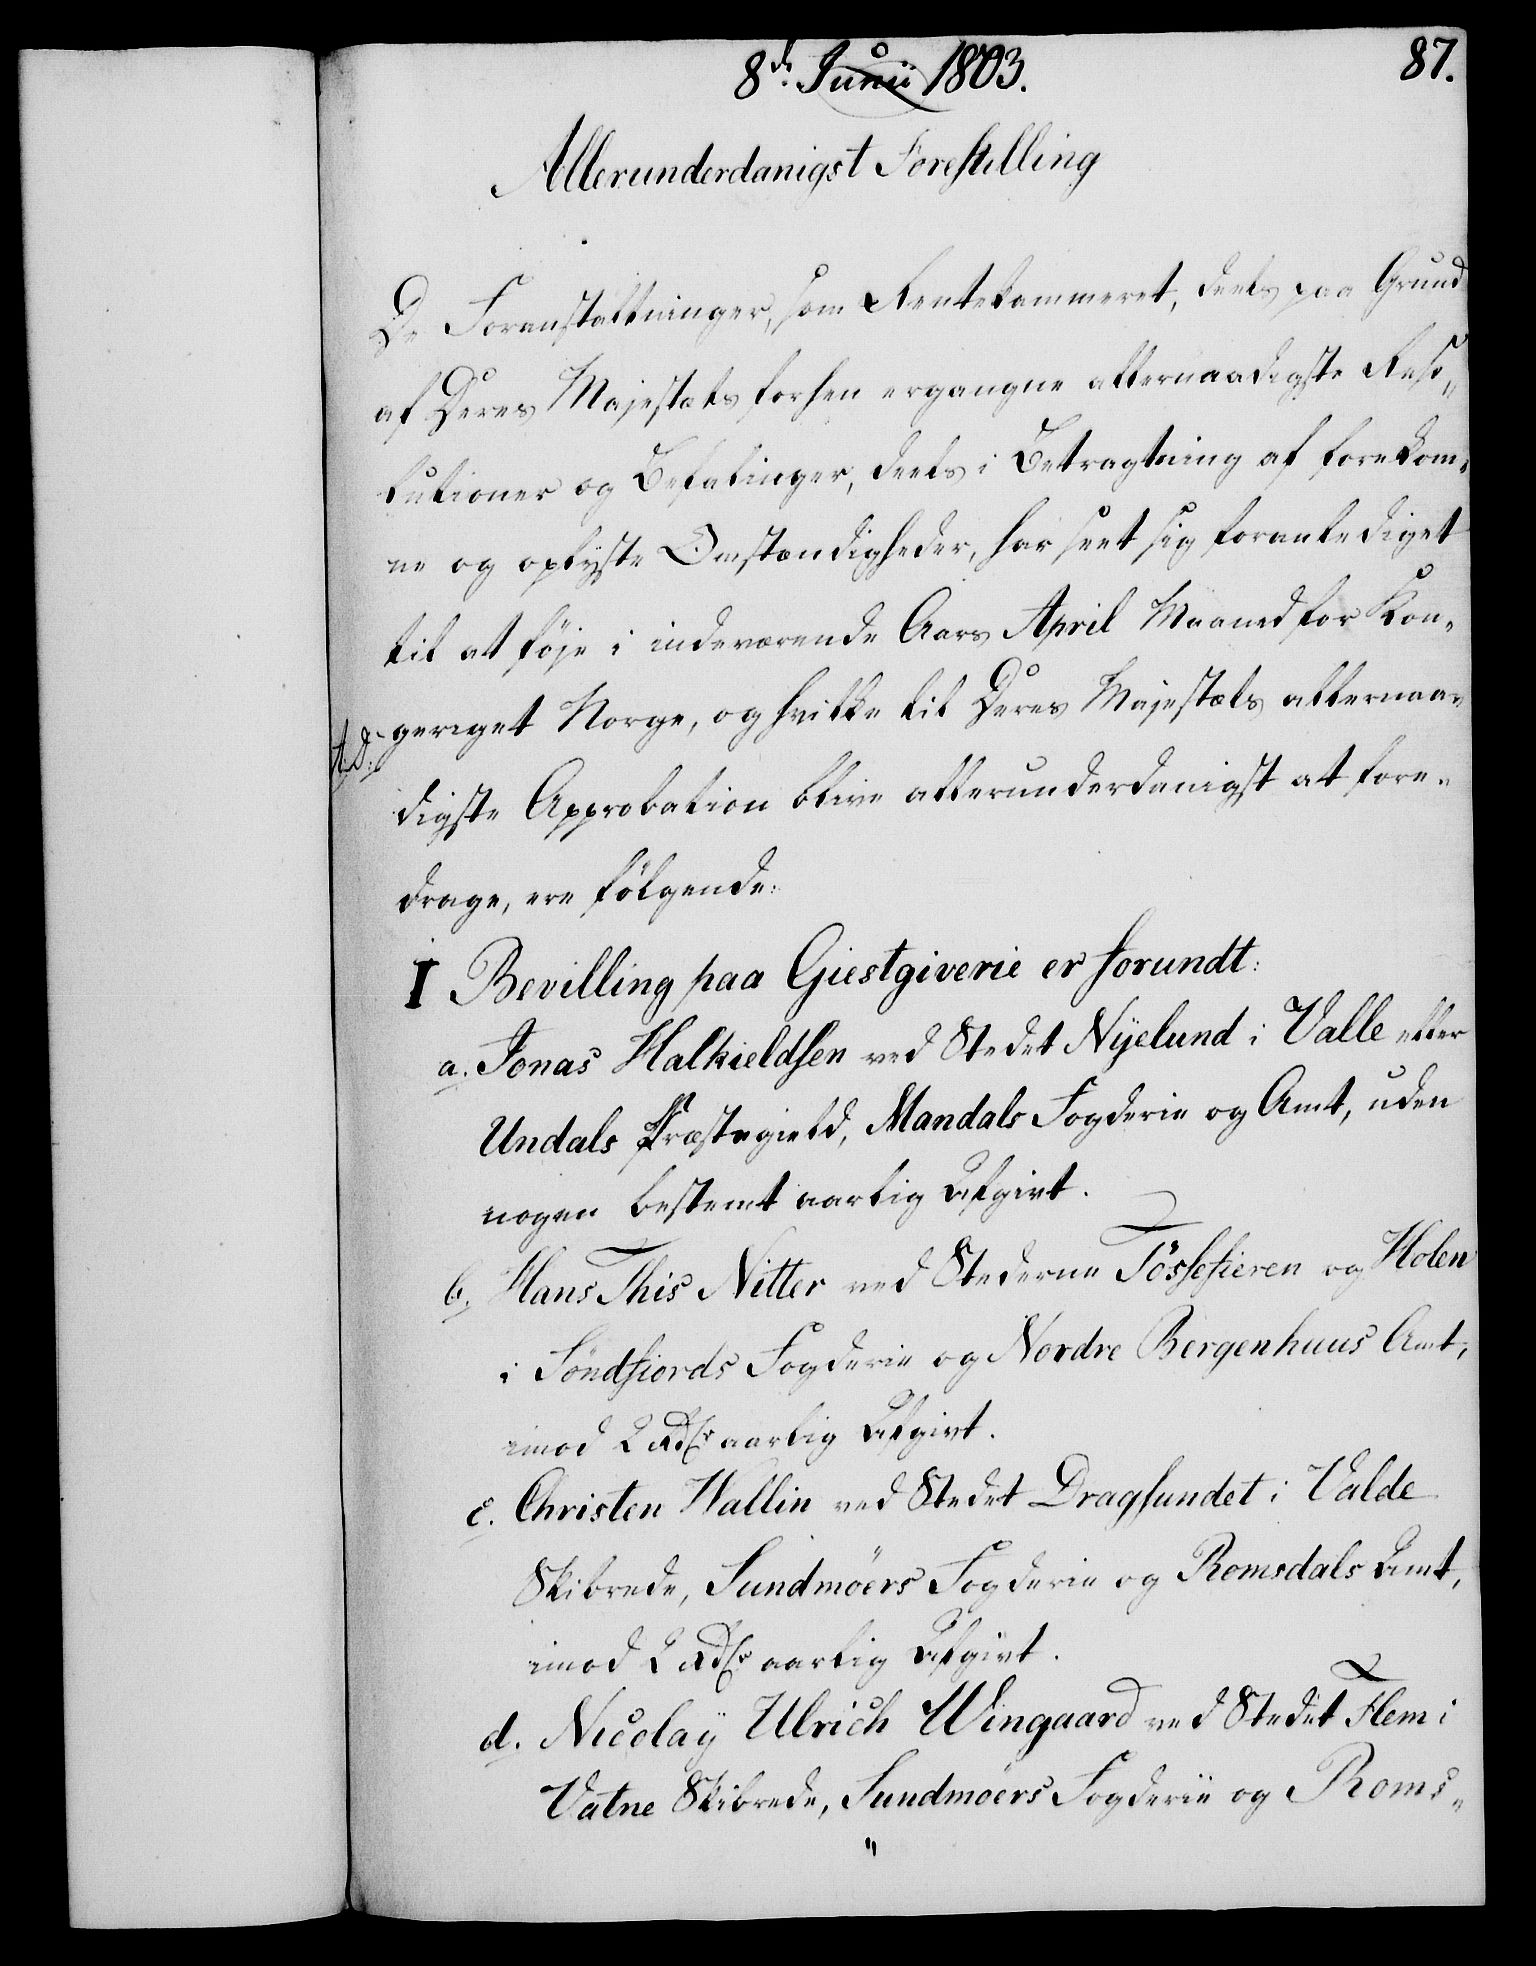 8de Junii 1803.
87.
Allerunderdanigst Forestilling
De Foranstaltninger, som Rentekammeret, deels paa Grund
af Deres Majestæts forhen ergangne allernaadigste Reso„
lutioner og Befalinger, deels i Betragtning af forekom„
ne og oplyste Omstændigheder, har seet sig foranlediget
til at föje i indeværende Aars April Maaned for Kon„
geriget Norge, og hvilke til Deres Majestæts allernaa„
digste Approbation blive allerunderdanigst at fore„
drage, ere fölgende:
I Bevilling paa Giestgiverie er forundt:
a. Jonas Halkieldsen ved Stedet Nÿelund i Valle eller
Undals Præstegield, Mandals Fogderie og Amt, uden
nogen bestemt aarlig Afgivt.
b. Hans This Nitter ved Stederne Fössefieren og Holen
i Söndfiords Fogderie og Nordre Bergenhuus Amt,
imod 2 Rdlr aarlig Afgivt.
c. Christen Wallin ved Stedet Dragsundet i Valde
Skibrede, Sundmöers Fogderie og Romsdals Amt,
imod 2 Rdlr aarlig Afgivt.
d. Nicolaÿ Ulrich Wingaard ved Stedet Flem i
Vatne Skibrede, Sundmöers Fogderie og Roms„